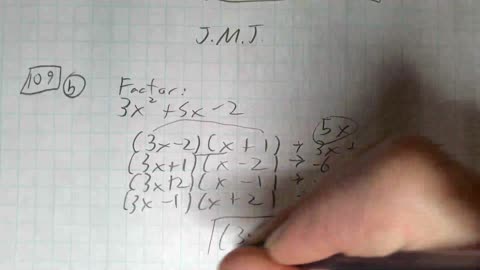 J.M.J.
109 b
Factor:
3x² + 5x - 2
5x
(3x - 2)(x + 1) → 3x
(3x + 1)(x - 2) → -6
(3x + 2)(x - 1) →
(3x - 1)(x + 2)
(3